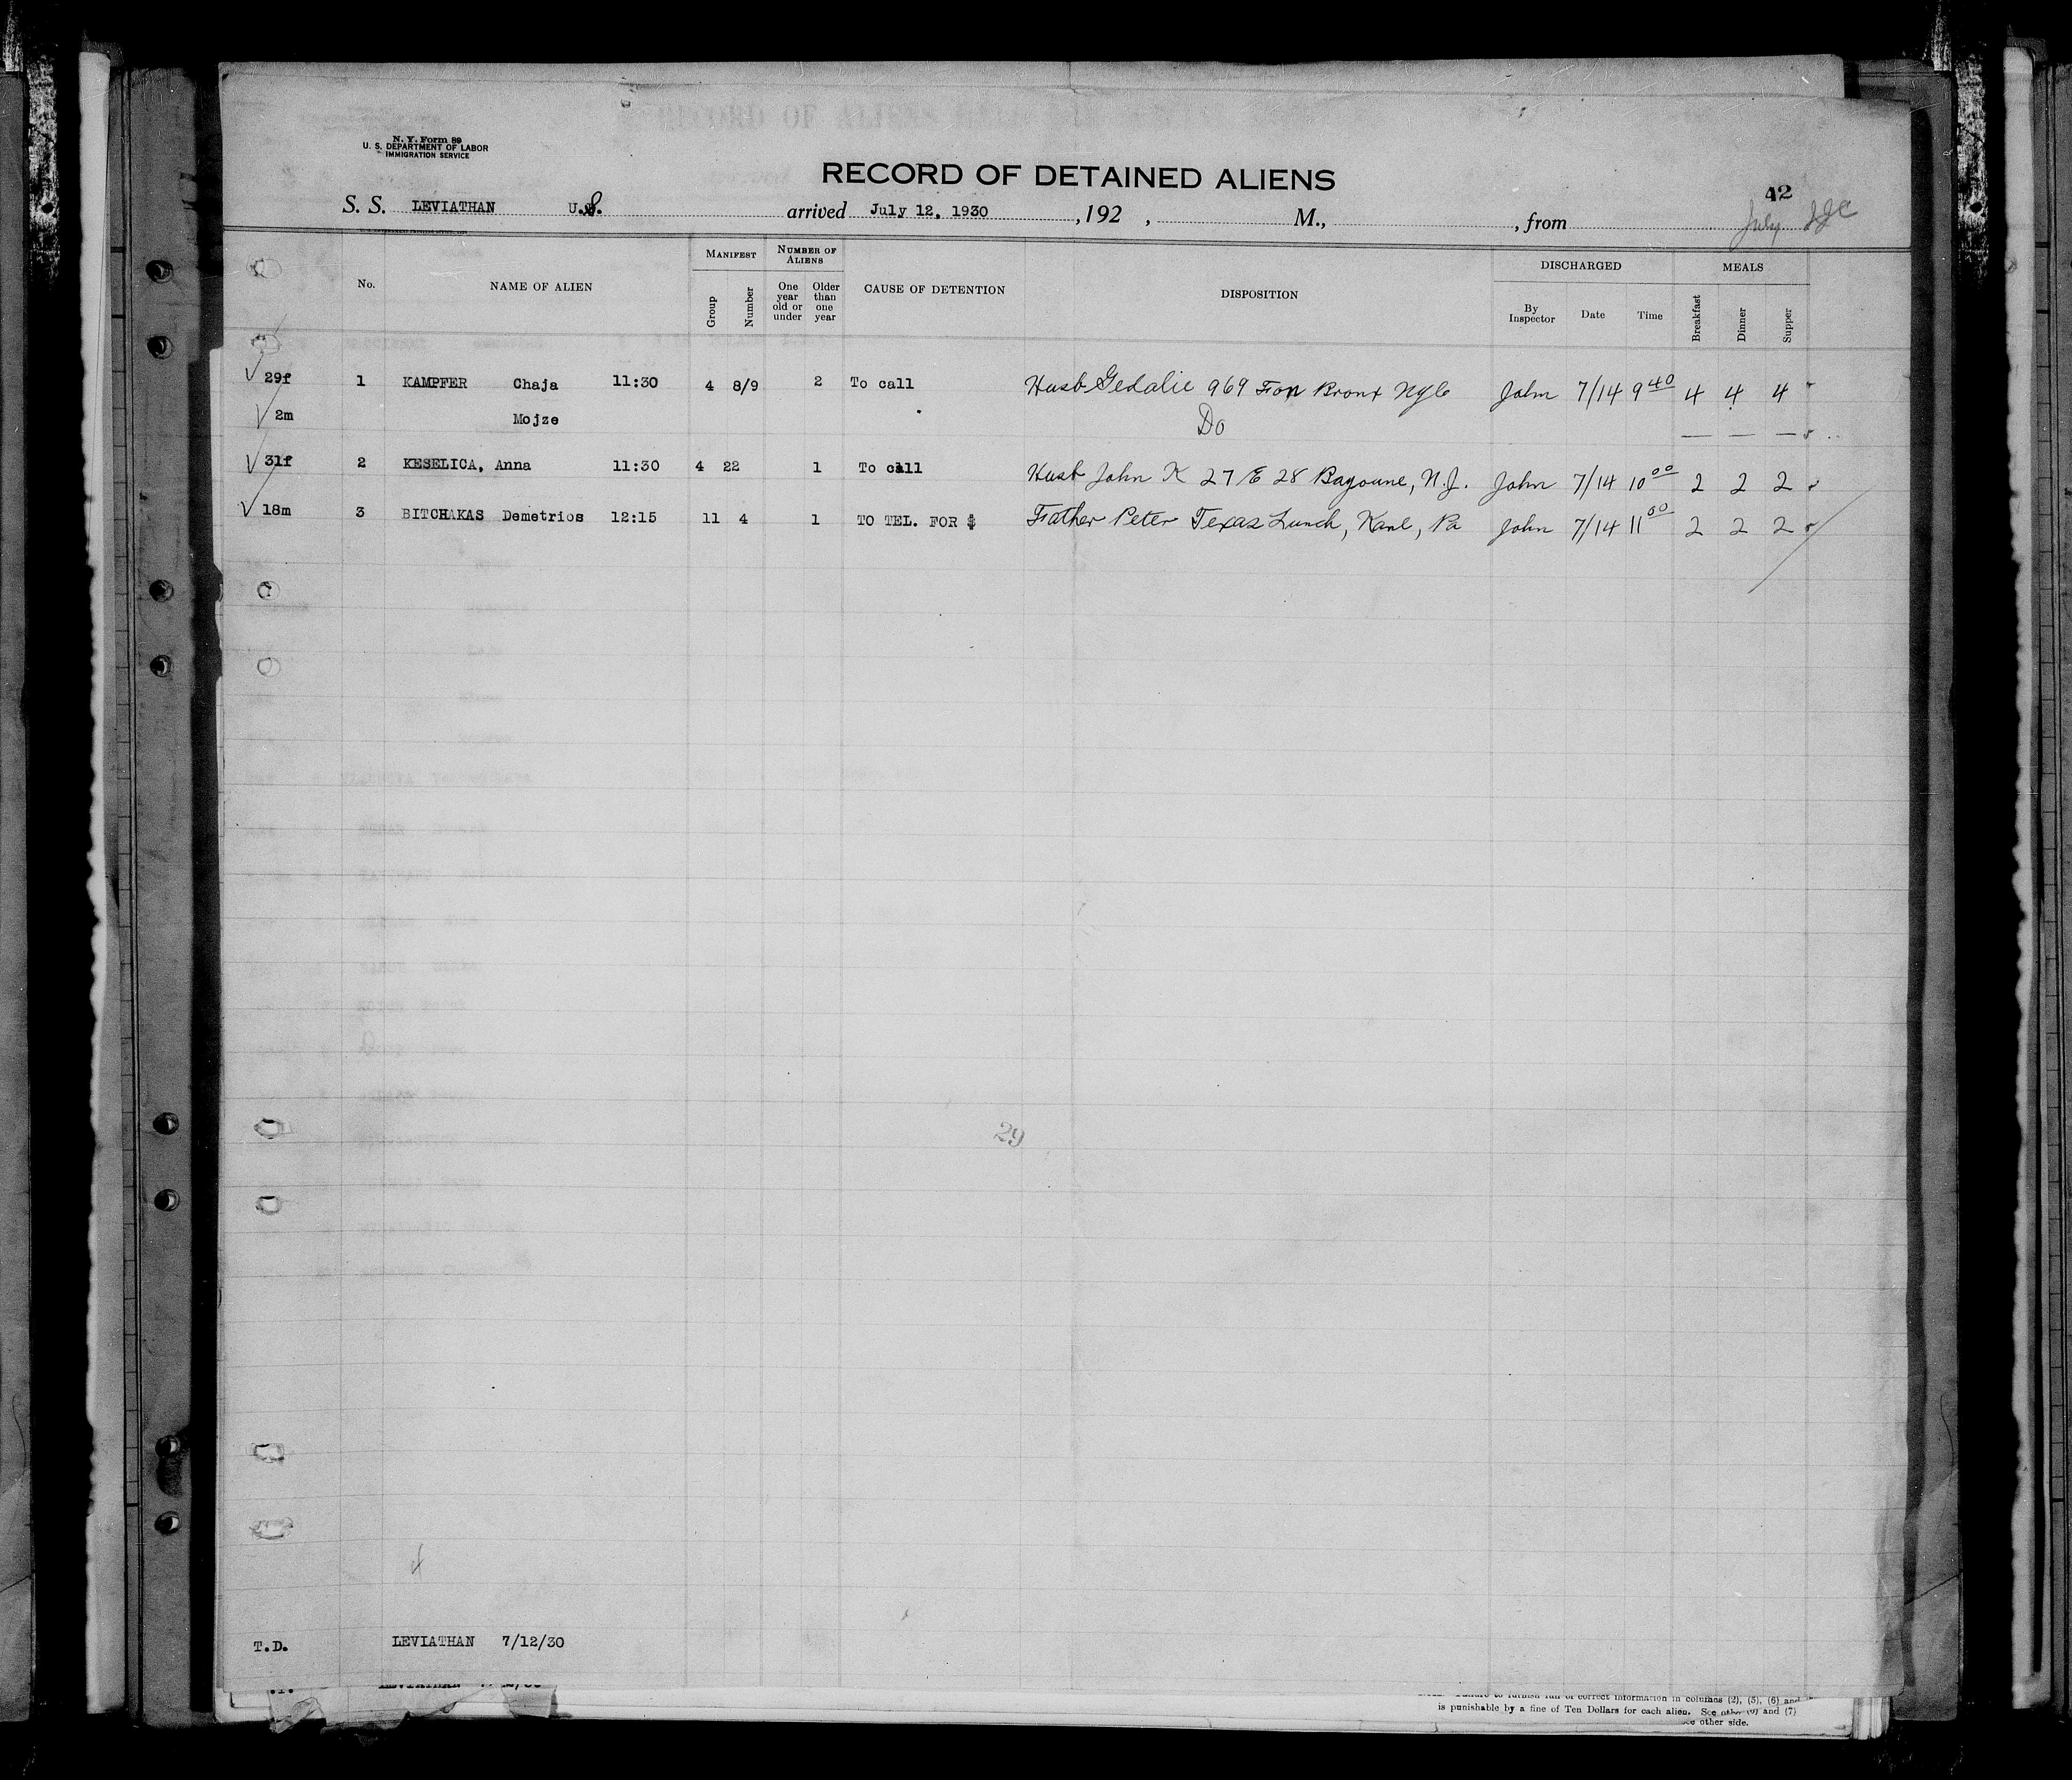 N. Y. Form 89
U. S. DEPARTMENT OF LABOR
IMMIGRATION SERVICE
RECORD OF DETAINED ALIENS
42
S. S. LEVIATHAN U.S. arrived July 12, 1930, 192 , M., , from July
No. NAME OF ALIEN MANIFEST Group Number NUMBER OF ALIENS One year old or under Older than one year CAUSE OF DETENTION DISPOSITION DISCHARGED By Inspector Date Time MEALS Breakfast Dinner Supper
29f 1 KAMPFER Chaja 11:30 4 8/9 2 To call Husb Gedalie 969 Fox Bronx John 7/14 9 40 4 4 4
2m Mojze Do — — —
31f 2 KESELICA, Anna 11:30 4 22 1 To call Husb John K 27 E 28 Bayoune, N.J. John 7/14 10 00 2 2 2
18m 3 BITCHAKAS Demetrios 12:15 11 4 1 TO TEL. FOR $ Father Peter Texas Lunch, Kane, Pa John 7/14 11 00 2 2 2
29
T.D. LEVIATHAN 7/12/30
LEVIATHAN
to furnish full or correct information in columns (2), (5), (6) and
is punishable by a fine of Ten Dollars for each alien. See other (6) and (7)
other side.